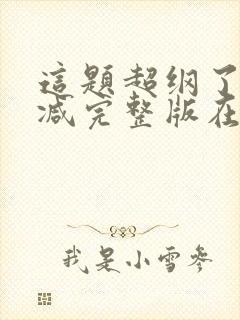 這題超纲了
减完整版在
我是小雪參